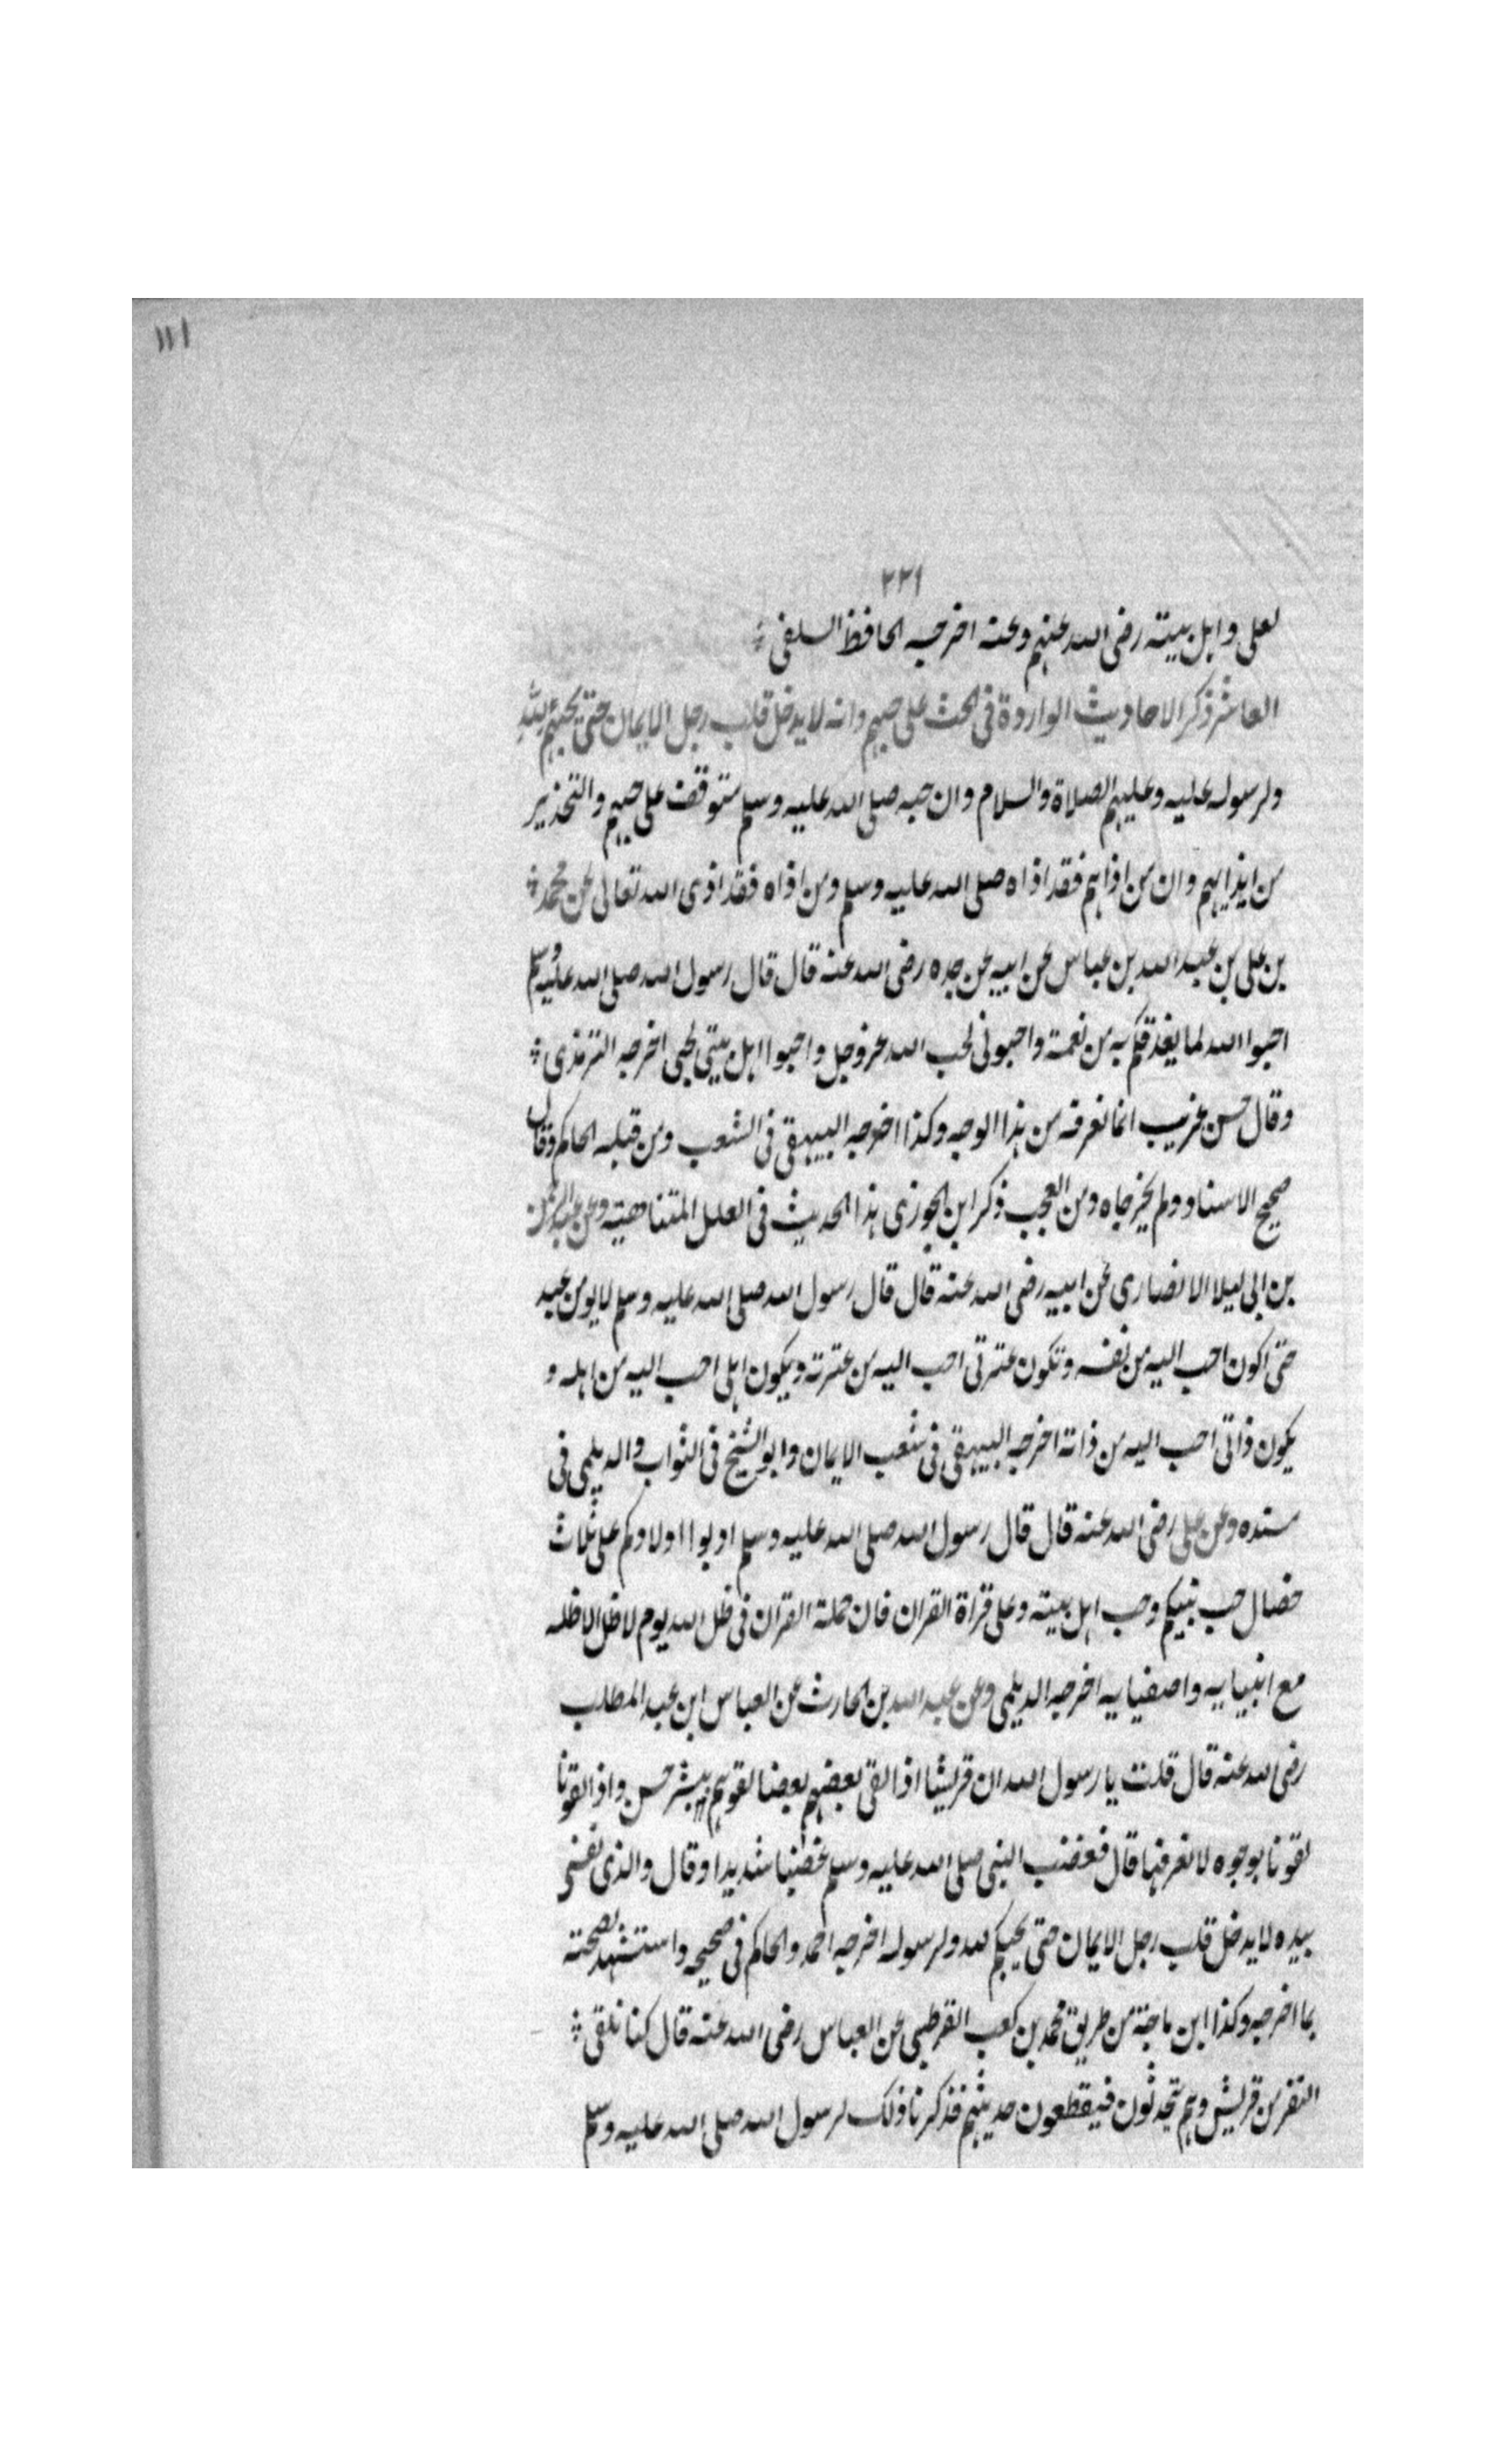 ١١١
٢٢١
لعلى واهل بيته رضى الله عنهم وعنه اخرجه الحافظ السلفى
العاشر ذكر الاحاديث الواردة فى الحث على حبهم وانه لا يدخل قلب رجل الايمان حتى يحبهم لله
ولرسوله عليه وعليهم الصلاة والسلام وان حبه صلى الله عليه وسلم متوقف على حبهم والتحذير
من ايذايهم وان من اذاهم فقد اذاه صلى الله عليه وسلم ومن اذاه فقد اذى الله تعالى عن محمد
بن على بن عبد الله بن عباس عن ابيه عن جده رضى الله عنه قال قال رسول الله صلى الله عليه وسلم
احبوا الله لما يغذوكم به من نعمة واحبونى لحب الله عز وجل واحبوا اهل بيتى لحبى اخرجه الترمذى
وقال حسن غريب انما نعرفه من هذا الوجه وكذا اخرجه البيهقى فى الشعب ومن قبله الحاكم وقال
صحيح الاسناد ولم يخرجاه ومن العجب ذكر ابن الجوزى هذا الحديث فى العلل المتناهية وعن عبد الرحمن
بن ابى ليلا الانصارى عن ابيه رضى الله عنه قال قال رسول الله صلى الله عليه وسلم لا يومن عبد
حتى اكون احب اليه من نفسه وتكون عترتى احب اليه من عترته ويكون اهلى احب اليه من اهله و
يكون ذاتى احب اليه من ذاته اخرجه البيهقى فى شعب الايمان وابو الشيخ فى الثواب والديلمى فى
مسنده وعن على رضى الله عنه قال قال رسول الله صلى الله عليه وسلم ادبوا اولادكم على ثلاث
خصال حب نبيكم وحب اهل بيته وعلى قراة القران فان حملة القران فى ظل الله يوم لا ظل الا ظله
مع انبيايه واصفيايه اخرجه الديلمى وعن عبد الله بن الحارث عن العباس ابن عبد المطلب
رضى الله عنه قال قلت يا رسول الله ان قريشا اذا لقى بعضهم بعضا لقوهم ببشر حسن واذا لقونا
لقونا بوجوه لا نعرفها قال فغضب النبى صلى الله عليه وسلم غضبا شديدا وقال والذى نفسى
بيده لا يدخل قلب رجل الايمان حتى يحبكم لله ولرسوله اخرجه احمد والحاكم فى صحيحه واستشهد لصحته
بما اخرجه وكذا ابن ماجة من طريق محمد بن كعب القرظى عن العباس رضى الله عنه قال كنا نلقى
النفر من قريش وهم يتحدثون فيقطعون حديثهم فذكرنا ذلك لرسول الله صلى الله عليه وسلم